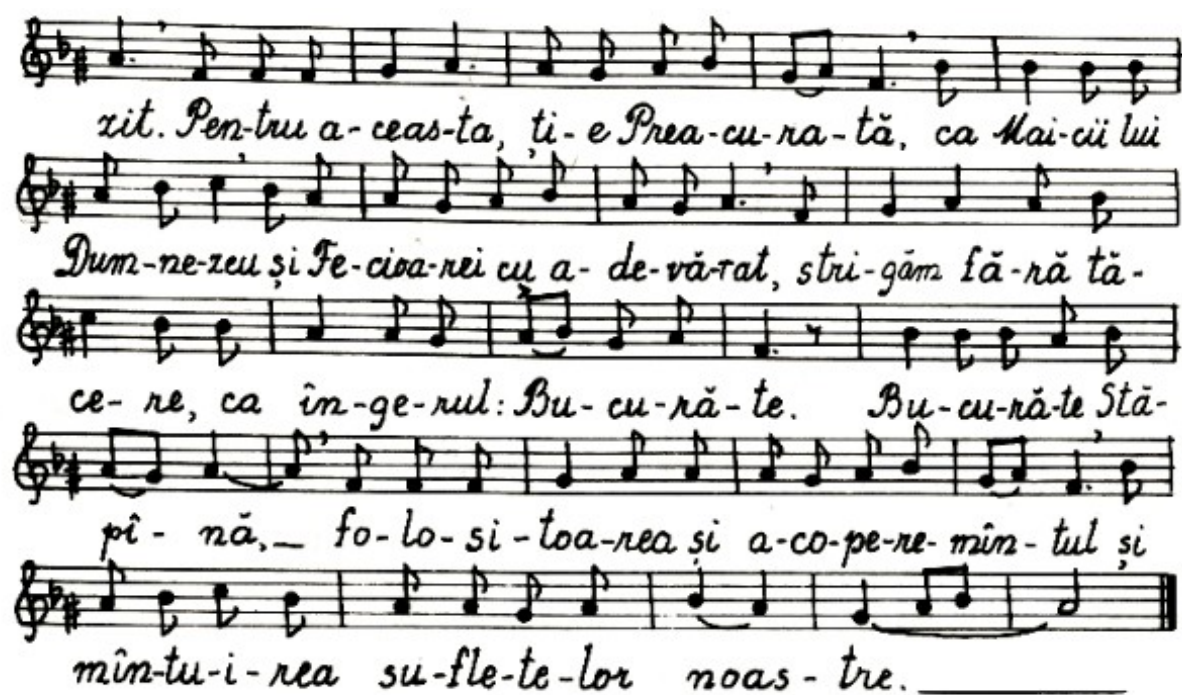 zit. Pen-tru a-ceas-ta, ți-e Prea-cu-ra-tă, ca Mai-cii lui
Dum-ne-zeu și Fe-cioa-rei cu a-de-vă-rat, stri-găm fă-ră tă-
ce-re, ca în-ge-rul: Bu-cu-ră-te. Bu-cu-ră-te Stă-
pî-nă,_ fo-lo-si-toa-rea și a-co-pe-re-mîn-tul și
mîn-tu-i-rea su-fle-te-lor noas-tre.